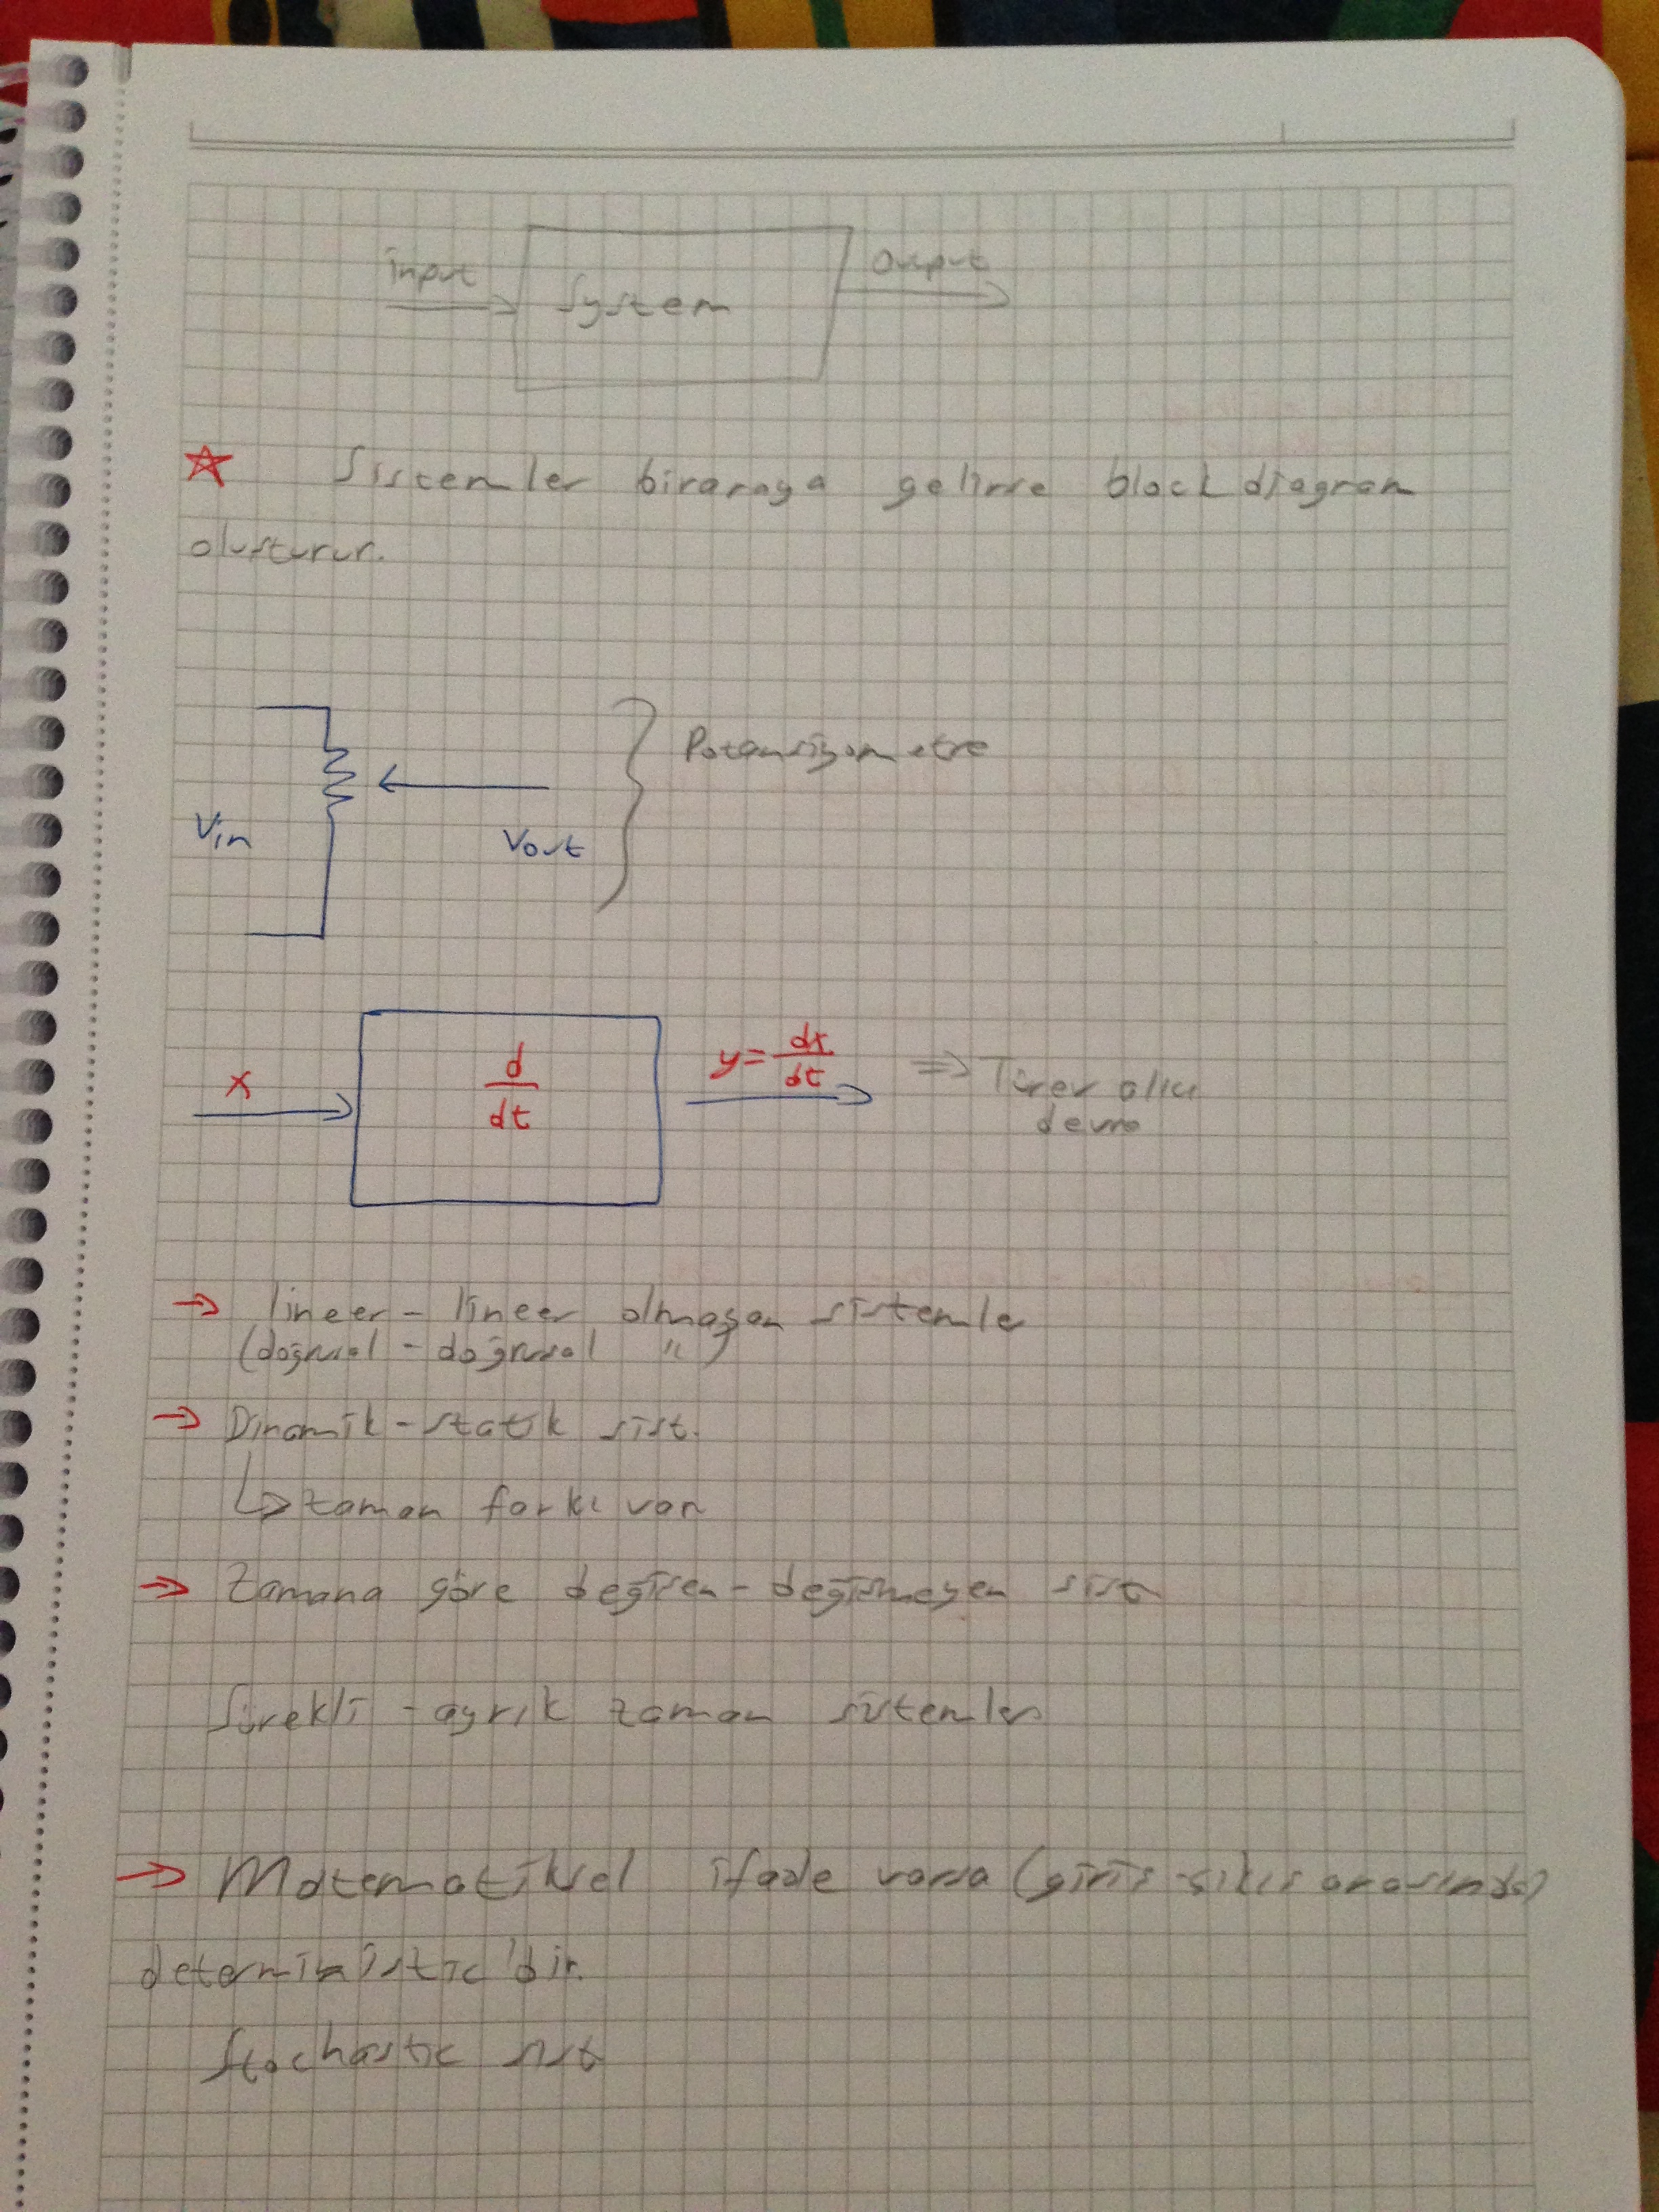 input
System
Output
☆ Sistemler biraraya gelirse block diagram
oluşturur.
Potansiyometre
Vin
Vout
x
d/dt
y = dx/dt
⇒ Türev alıcı
devre
→ lineer - lineer olmayan sistemle
(doğrusal - doğrusal " )
→ Dinamik - statik sist.
↳ zaman farkı var
→ Zamana göre değişen - değişmeyen sist
Sürekli - ayrık zaman sistemler
→ Matematiksel ifade varsa (giriş - çıkış arasında)
deterministic'dir.
Stochastic sist